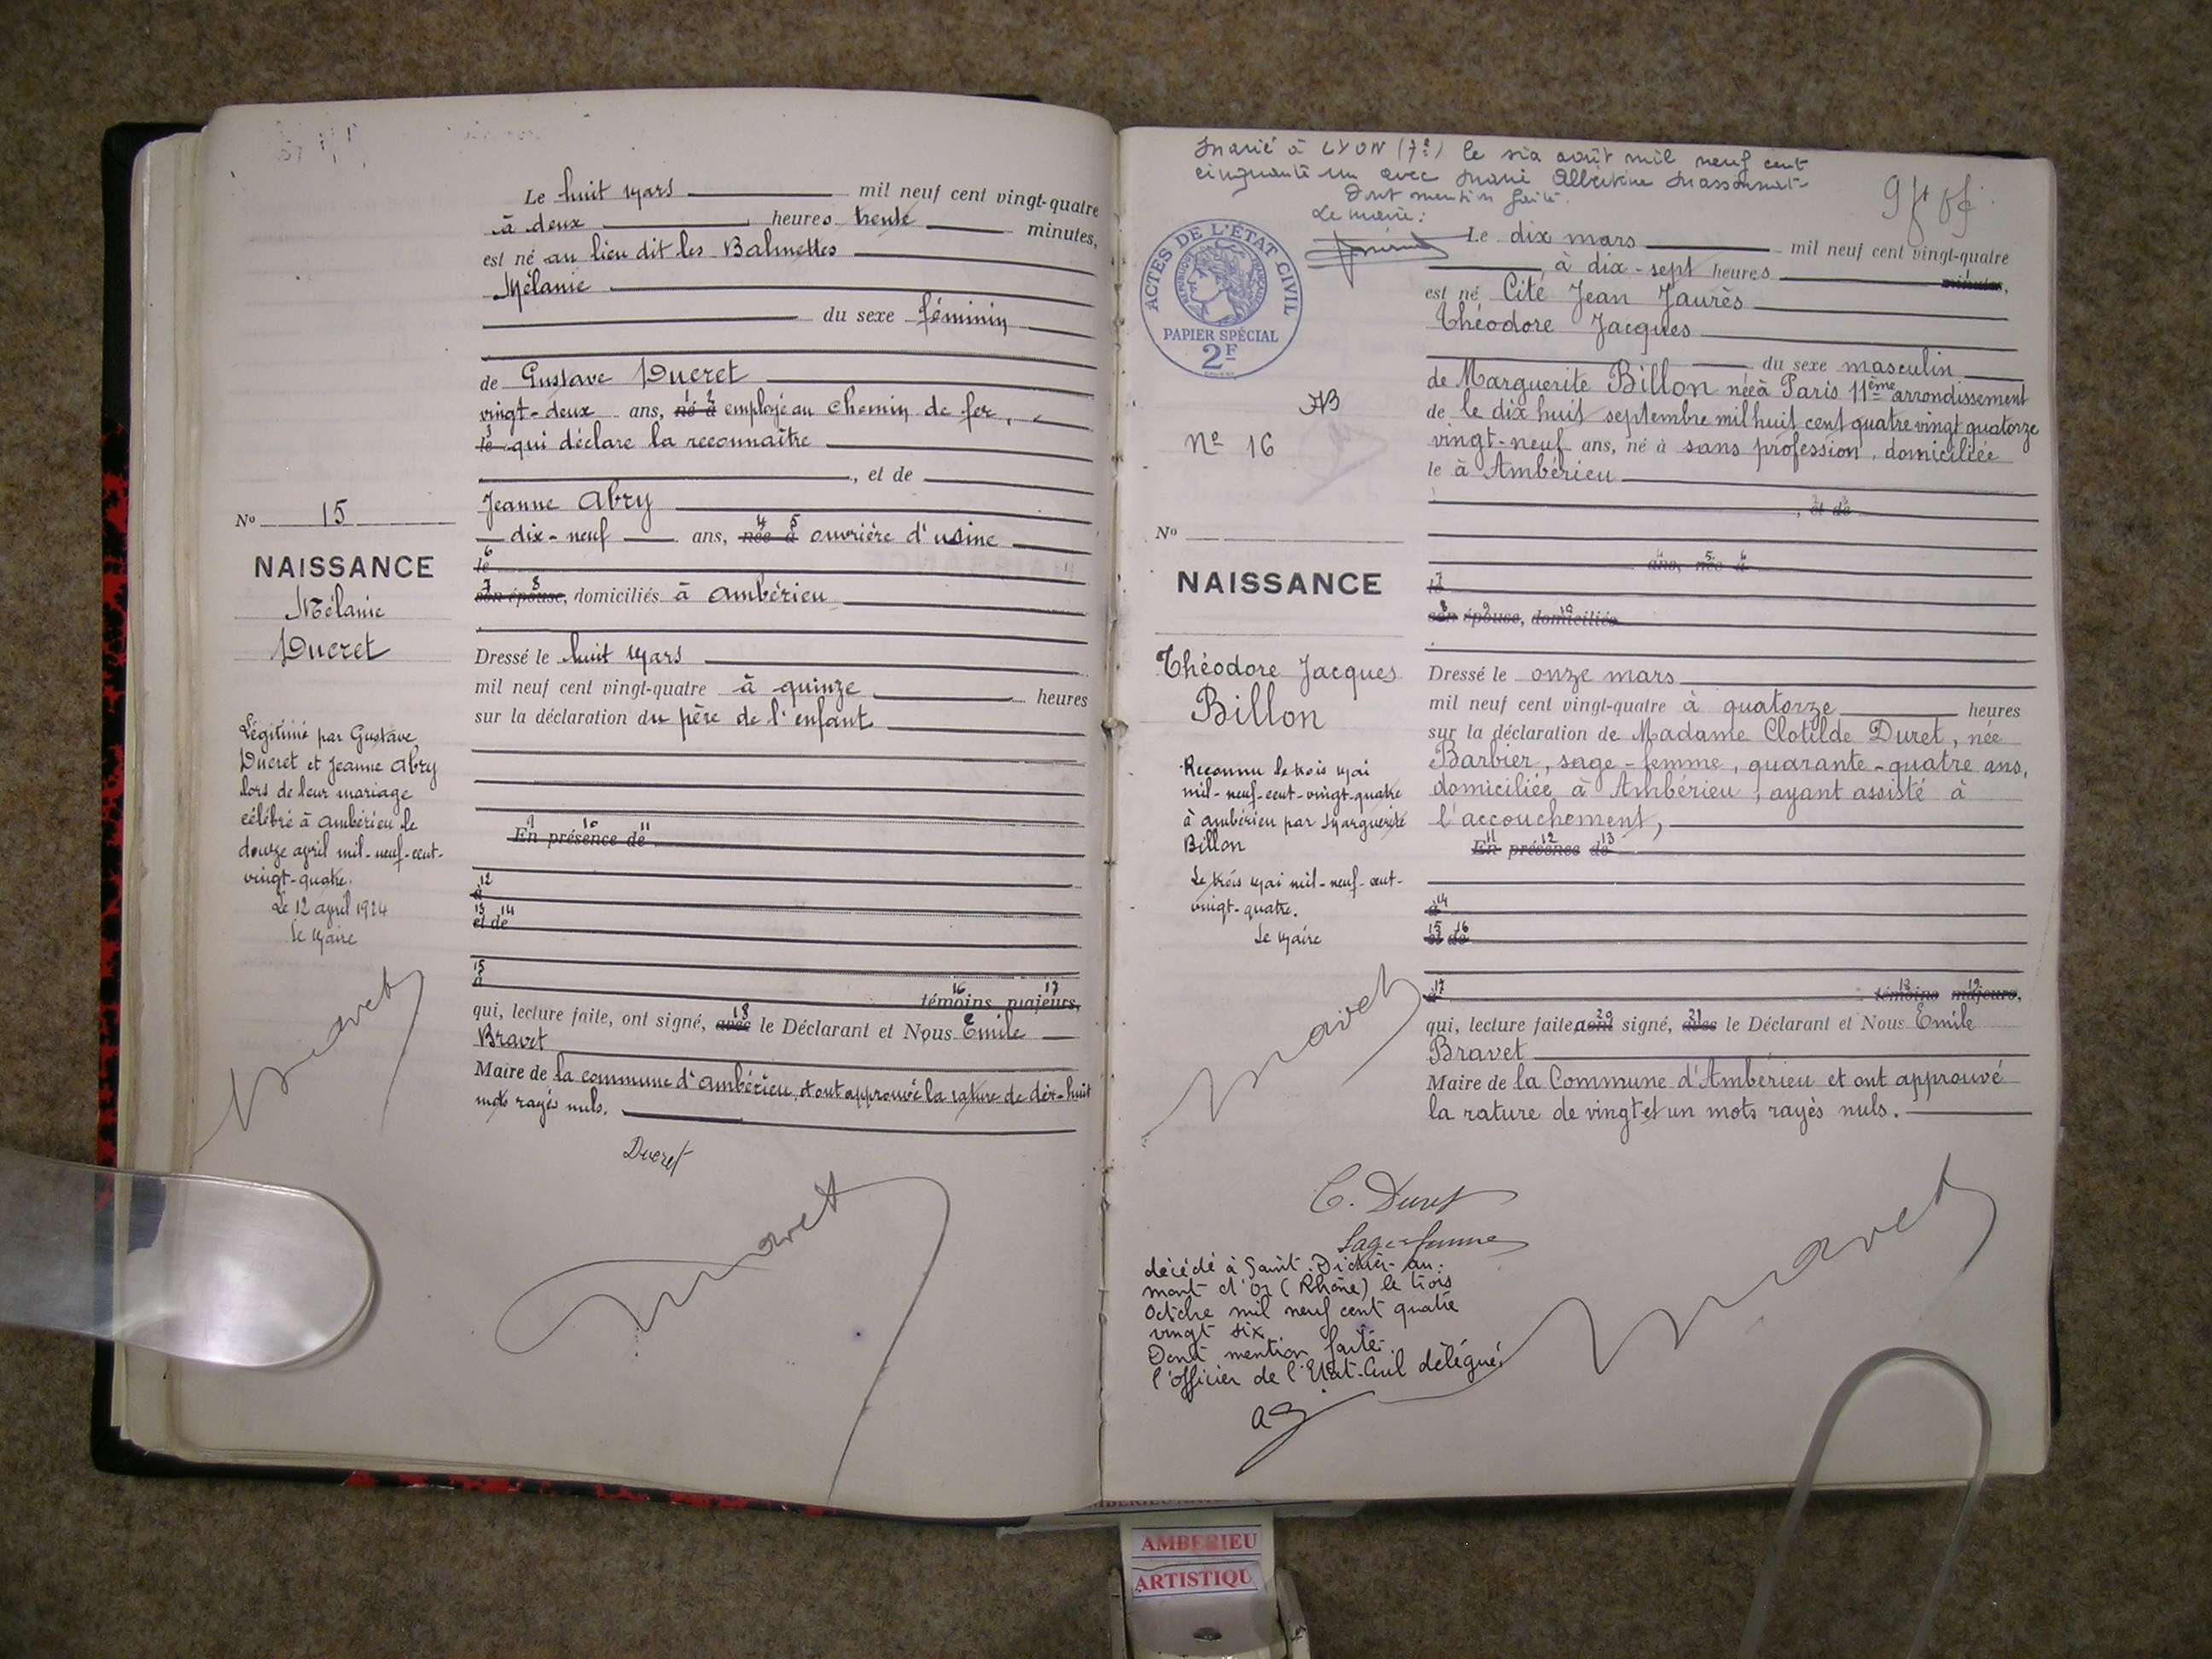 Le huit Mars mil neuf cent vingt-quatre
à deux heures trente minutes,
est né au lieu dit les Balmettes
Mélanie
du sexe féminin
de Gustave Ducret
vingt-deux ans, né à employé au chemin de fer,
le qui déclare la reconnaître
, et de
Jeanne Abry
dix-neuf ans, née à ouvrière d'usine
le
son épouse, domiciliés à Ambérieu
Dressé le huit Mars
mil neuf cent vingt-quatre à quinze heures
sur la déclaration du père de l'enfant
En présence de
à
et de
à
témoins majeurs,
qui, lecture faite, ont signé, avec le Déclarant et Nous Emile
Bravet
Maire de la commune d'Ambérieu, et ont approuvé la rature de dix-huit
mots rayés nuls.
Ducret
Bravet
No 15
NAISSANCE
Mélanie
Ducret
Légitimé par Gustave
Ducret et Jeanne Abry
lors de leur mariage
célébré à Ambérieu le
douze avril mil-neuf-cent-
vingt-quatre.
Le 12 avril 1924
Le Maire
Bravet
Marié à LYON (7e) le six août mil neuf cent
cinquante un avec Marie Albertine Massonnat
Dont mention faite.
Le maire:
ACTES DE L'ÉTAT CIVIL
RÉPUBLIQUE FRANÇAISE
PAPIER SPÉCIAL
2F
Nº 16
No
NAISSANCE
Théodore Jacques
Billon
Reconnu le trois Mai
mil-neuf-cent-vingt-quatre
à Ambérieu par Marguerite
Billon
Le trois Mai mil-neuf-cent-
vingt-quatre.
Le Maire
Bravet
Le dix mars mil neuf cent vingt-quatre
à dix-sept heures minutes,
est né Cité Jean Jaurès
Théodore Jacques
du sexe masculin
de Marguerite Billon née à Paris 11ème arrondissement
de le dix huit septembre mil huit cent quatre vingt quatorze
vingt-neuf ans, né à sans profession, domiciliée
le à Ambérieu
, et de
ans, née à
le
son épouse, domiciliés
Dressé le onze mars
mil neuf cent vingt-quatre à quatorze heures
sur la déclaration de Madame Clotilde Duret, née
Barbier, sage-femme, quarante-quatre ans,
domiciliée à Ambérieu, ayant assisté à
l'accouchement,
En présence de
à
et de
à
témoins majeurs,
qui, lecture faite, a ont signé, avec le Déclarant et Nous Emile
Bravet
Maire de la Commune d'Ambérieu et ont approuvé
la rature de vingt et un mots rayés nuls.
C. Duret
Sage-femme
Bravet
décédé à Saint-Didier-au-
mont d'Or (Rhône) le trois
Octobre mil neuf cent quatre
vingt six.
Dont mention faite.
l'Officier de l'Etat-Civil délégué,
AMBERIEU
ARTISTIQU